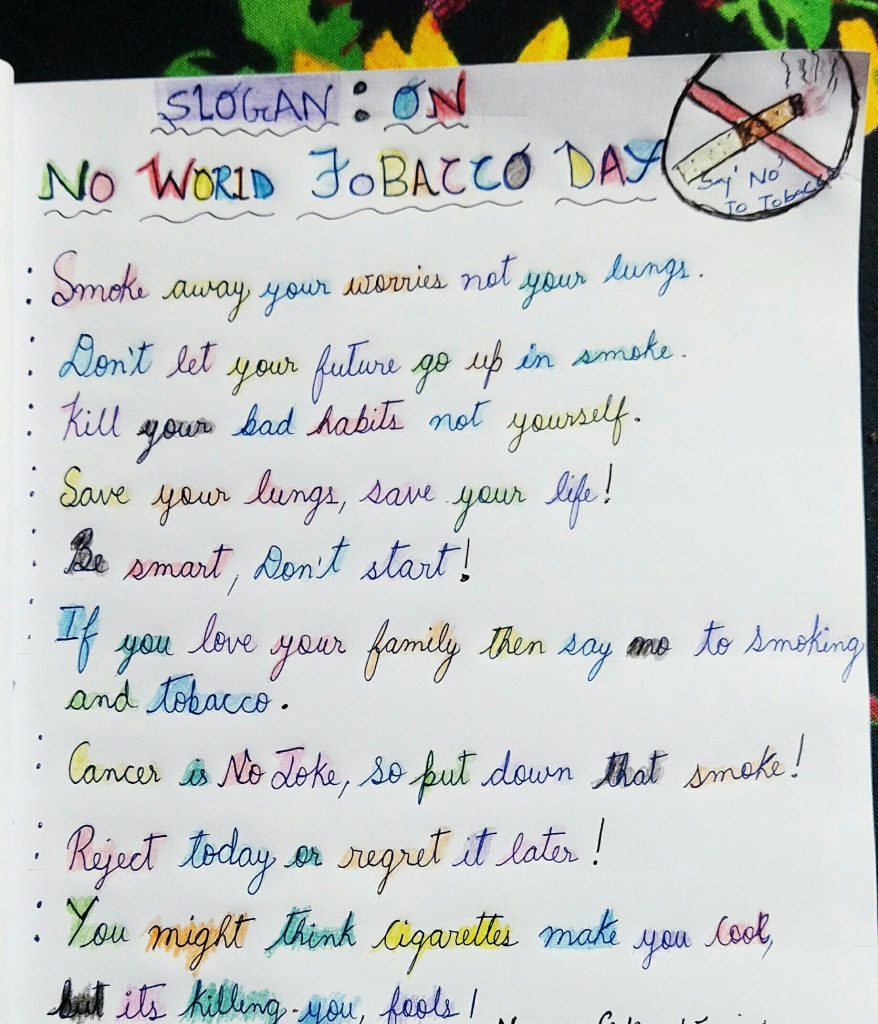 SLOGAN : ON
NO WORlD TOBACCO DAY
Say 'No'
To Tobacco
: Smoke away your worries not your lungs.
: Don't let your future go up in smoke.
: Kill your bad habits not yourself.
: Save your lungs, save your life!
: Be smart, Don't start!
: If you love your family then say no to smoking
and tobacco.
: Cancer is No Joke, so put down that smoke!
: Reject today or regret it later!
: You might think cigarettes make you cool,
but its killing you, fools!